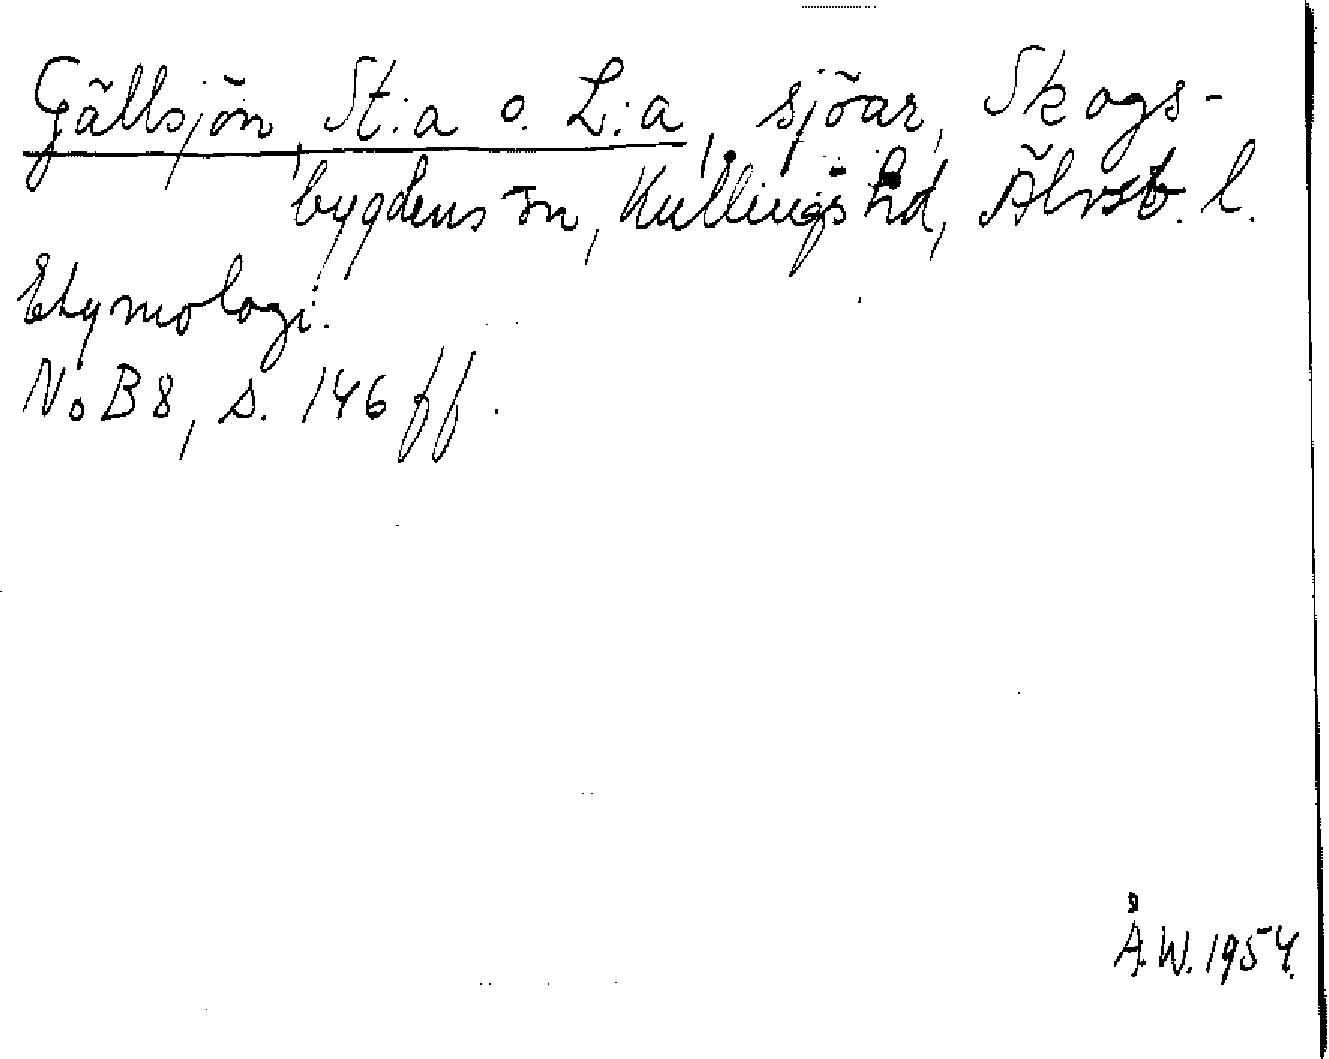 Gällsjön, St:a o. L:a, sjöar, Skogs-
bygdens sn, Kullings hd, Älvsb. l.
Etymologi.
NoB 8, s. 146 ff.
Å.W. 1954.